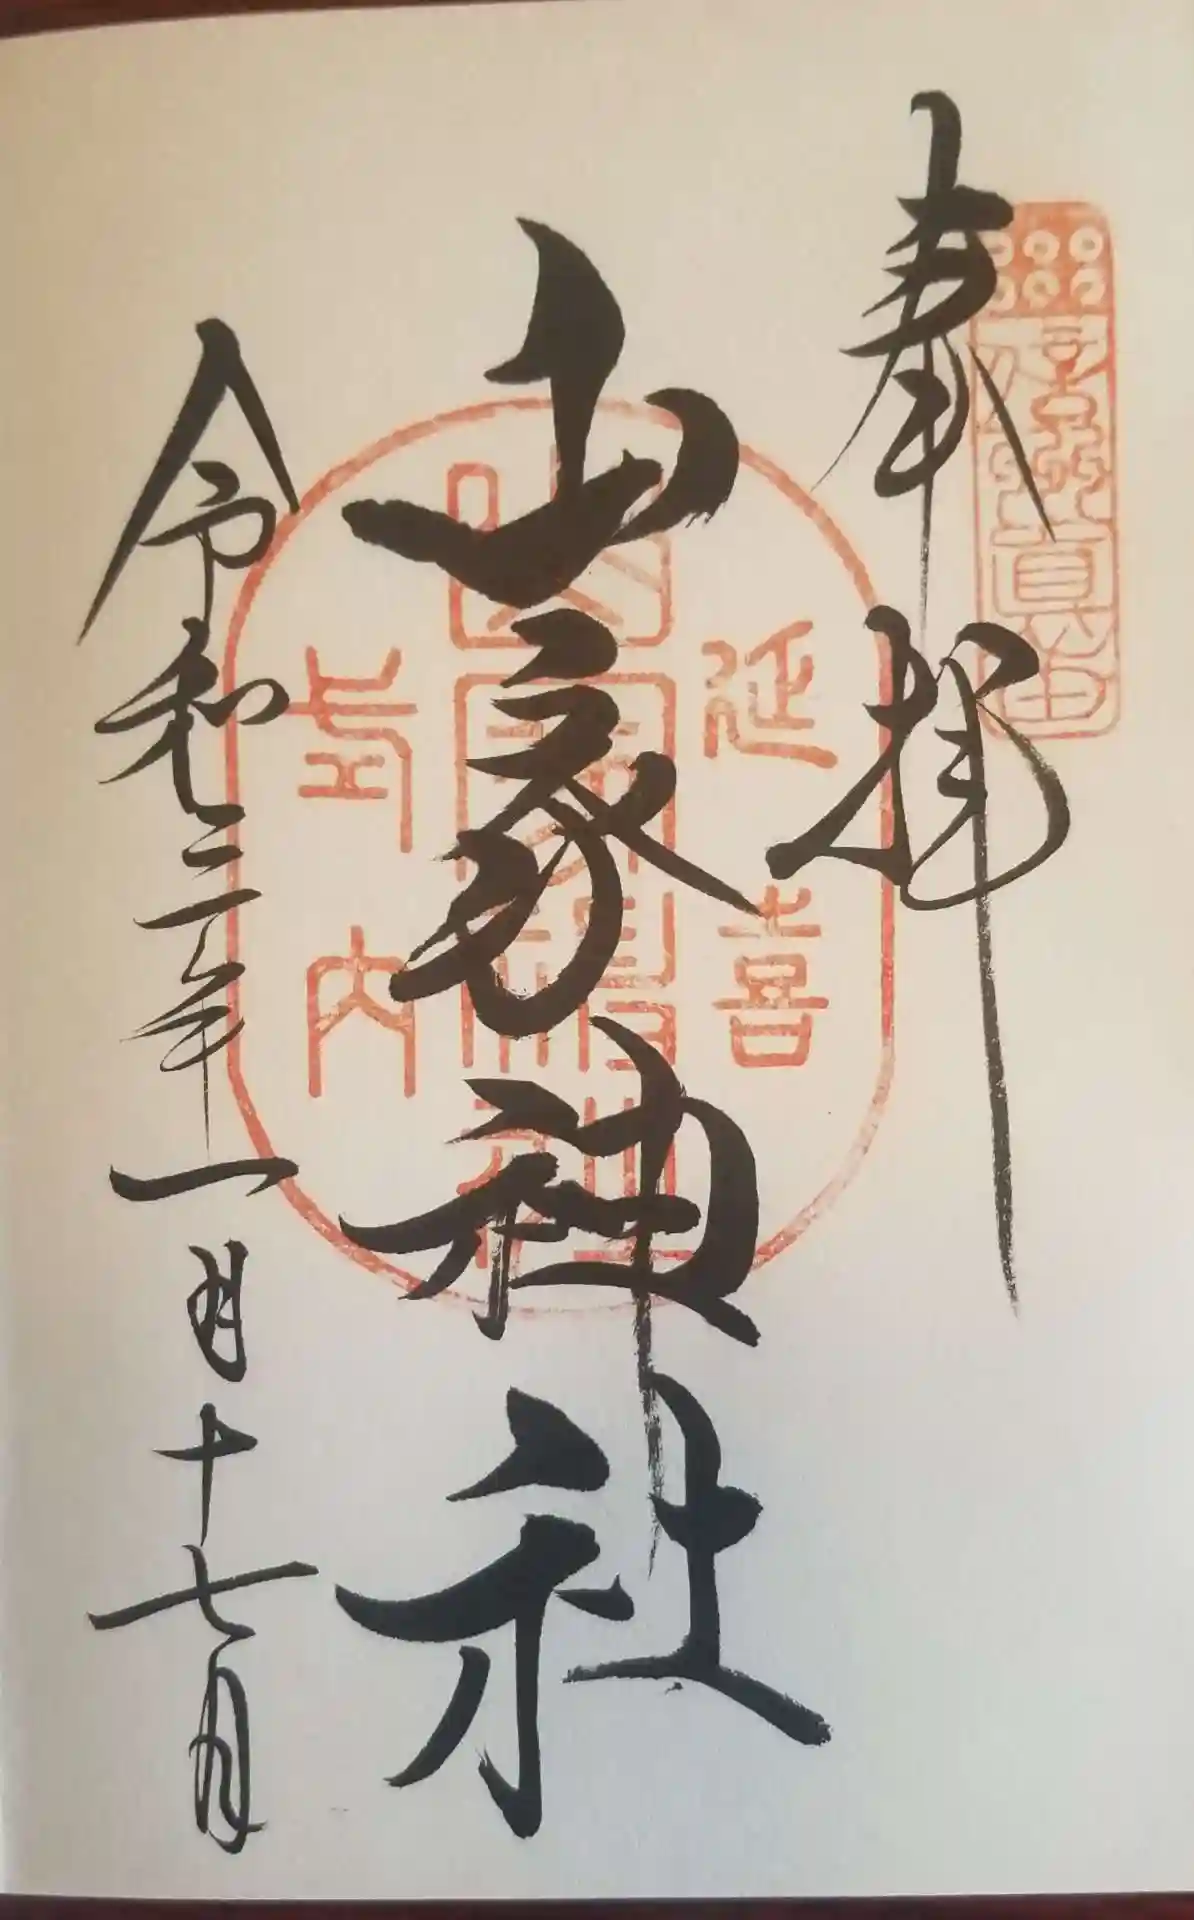 奉拝
信州眞田
山家神社
延喜
山家神社
式内
令和三年一月十七日